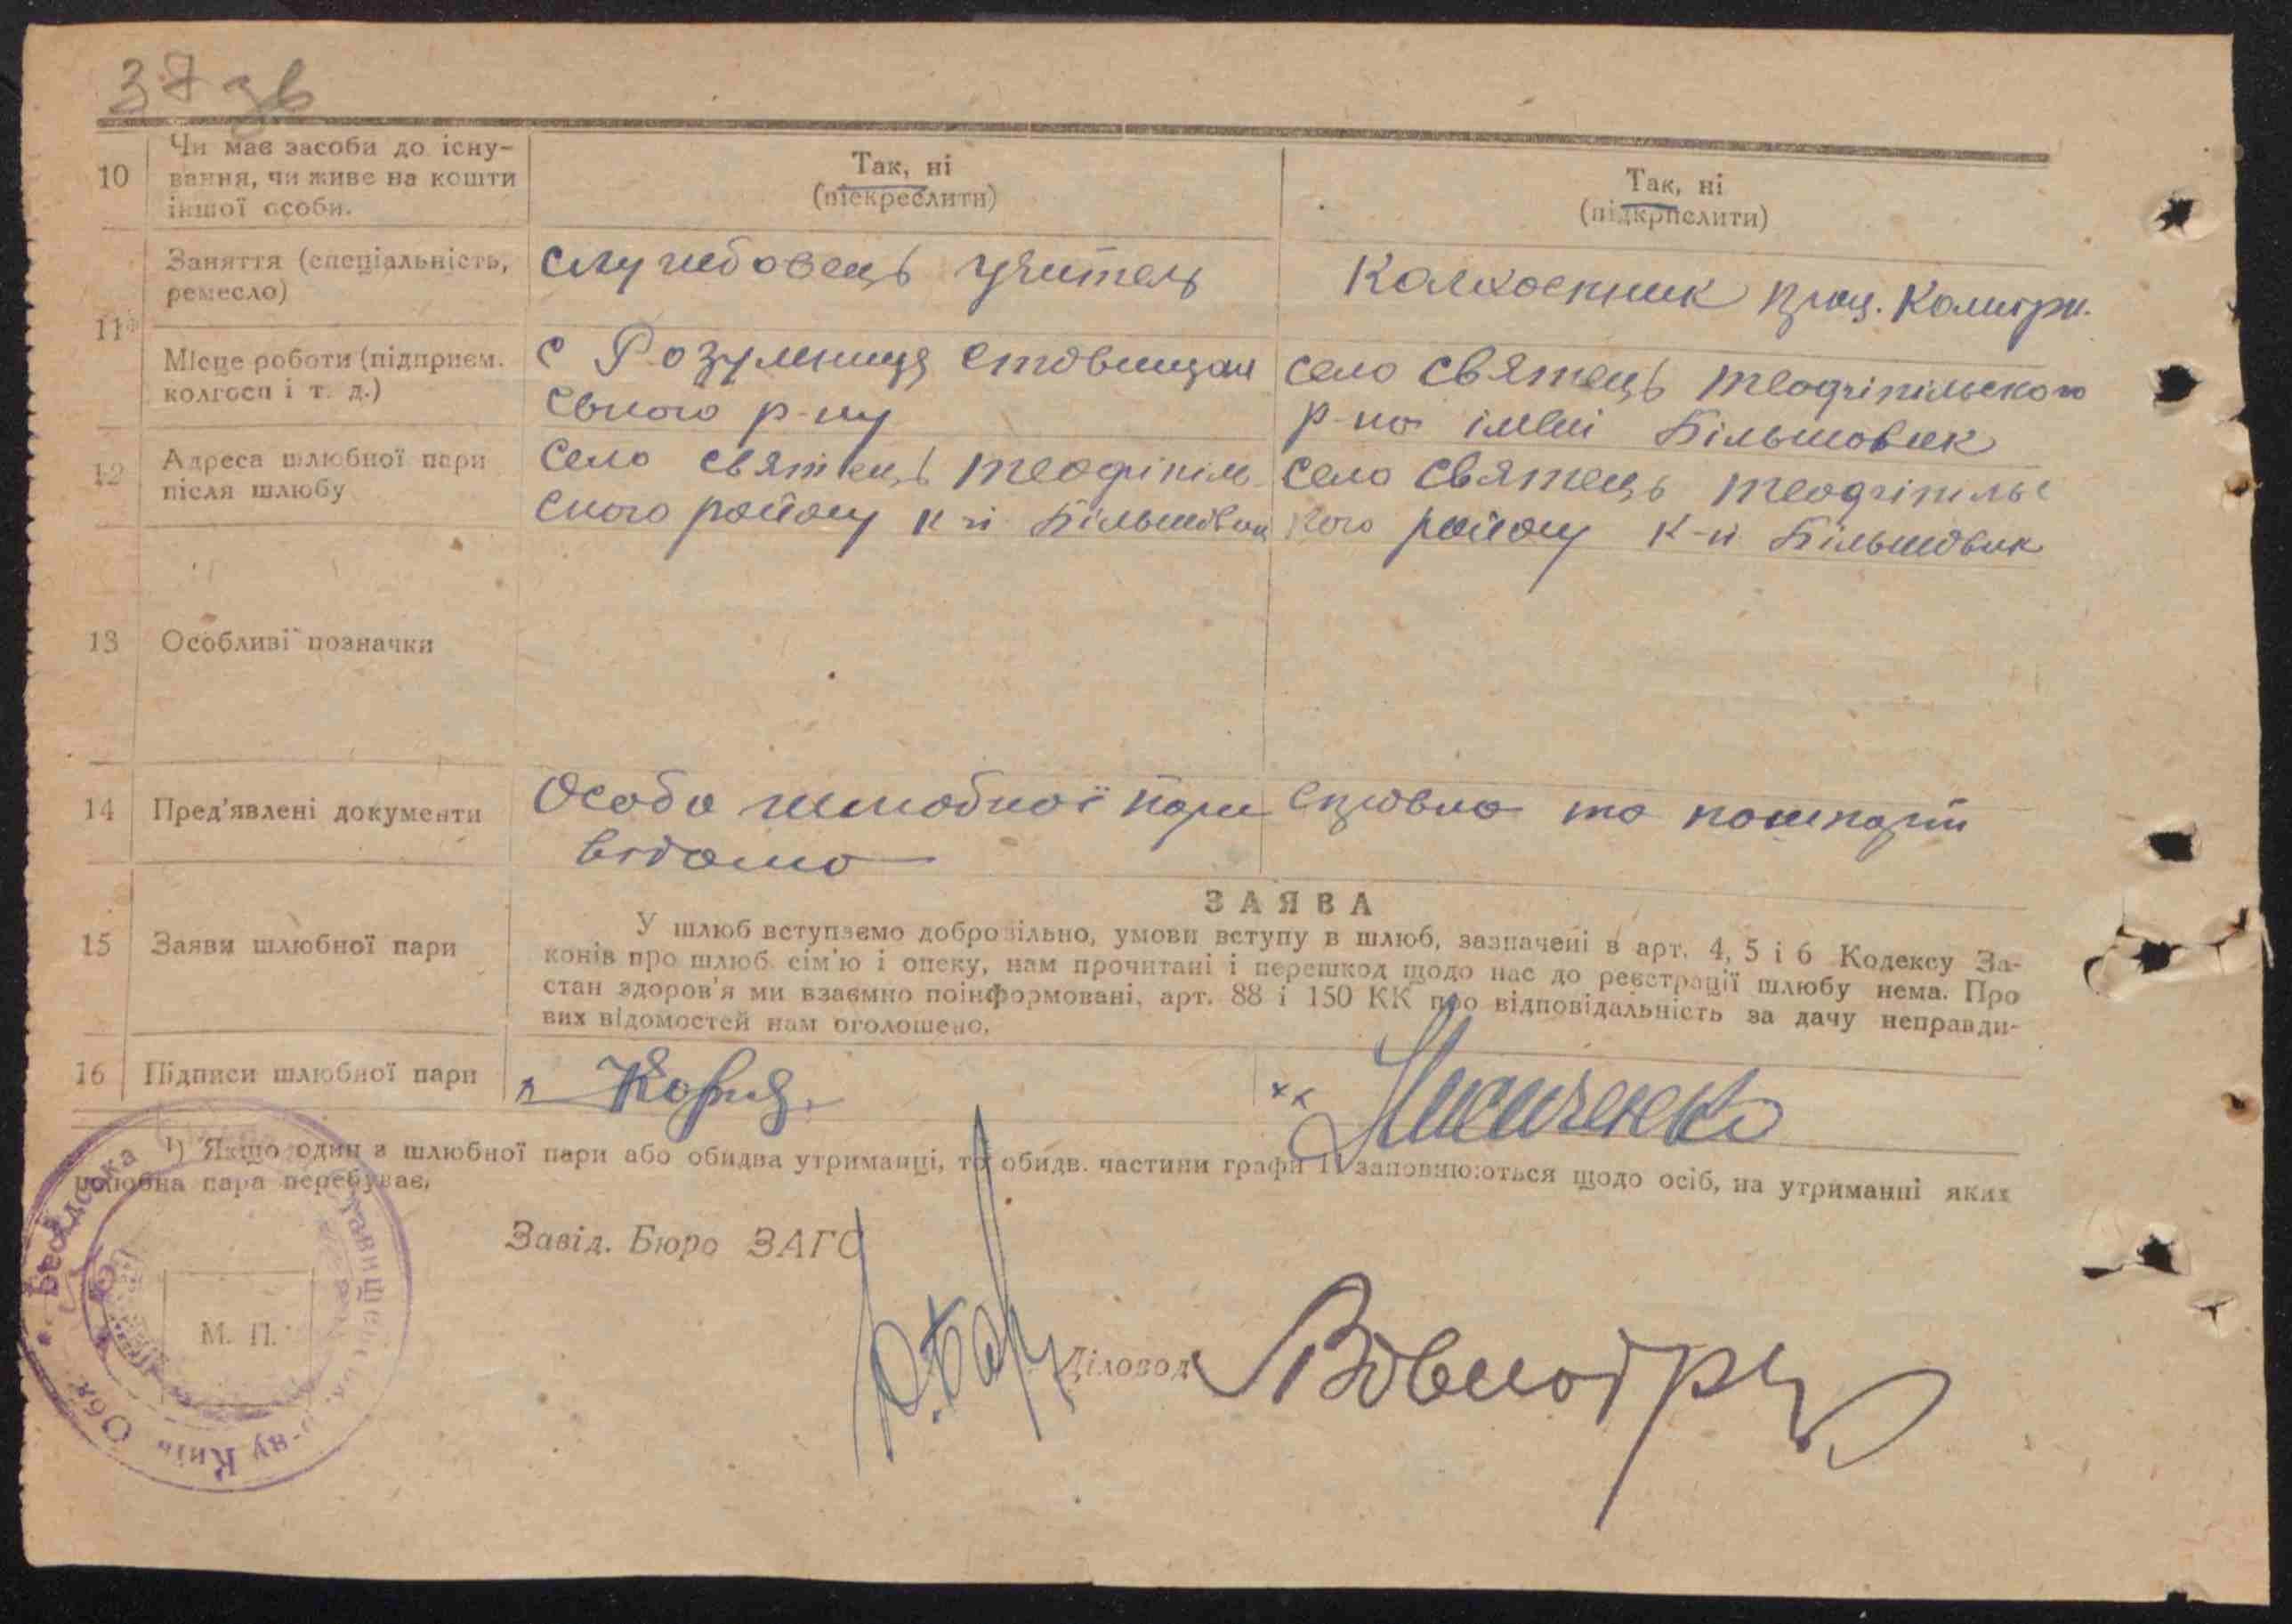 37 зв
10 Чи має засоби до існу-
вання, чи живе на кошти
іншої особи.
Так, ні
(підкреслити)
Так, ні
(підкрпслити)
11 Заняття (спеціальність,
ремесло)
службовець учитель
Колхосник
Місце роботи (підприєм.
колгосп і т. д.)
с Розумниця ставищан
ського р-ну
село святець теофіпільского
р-на імені Більшовик
12 Адреса шлюбної пари
після шлюбу
село святець теофіпіль
ского району к-п Більшовик
село святець теофіпільс
кого району к-п Більшовик
13 Особливі позначки
14 Пред'явлені документи
Особа шлюбної пари
відомо
справка та пошпорт
15 Заяви шлюбної пари
ЗАЯВА
У шлюб вступаємо добровільно, умови вступу в шлюб, зазначені в арт. 4, 5 і 6 Кодексу За-
конів про шлюб. сім'ю і опеку, нам прочитані і перешкод щодо нас до реєстрації шлюбу нема. Про
стан здоров'я ми взаємно поінформовані, арт. 88 і 150 КК про відповідальність за дачу неправди-
вих відомостей нам оголошено.
16 Підписи шлюбної пари
Нисиченко
¹) Якщо один з шлюбної пари або обидва утриманці, то обидв. частини графи 11 заповнюються щодо осіб, на утриманні яких
шлюбна пара перебуває.
Завід. Бюро ЗАГС
Діловод
М. П.
р-ну Київ Обл.